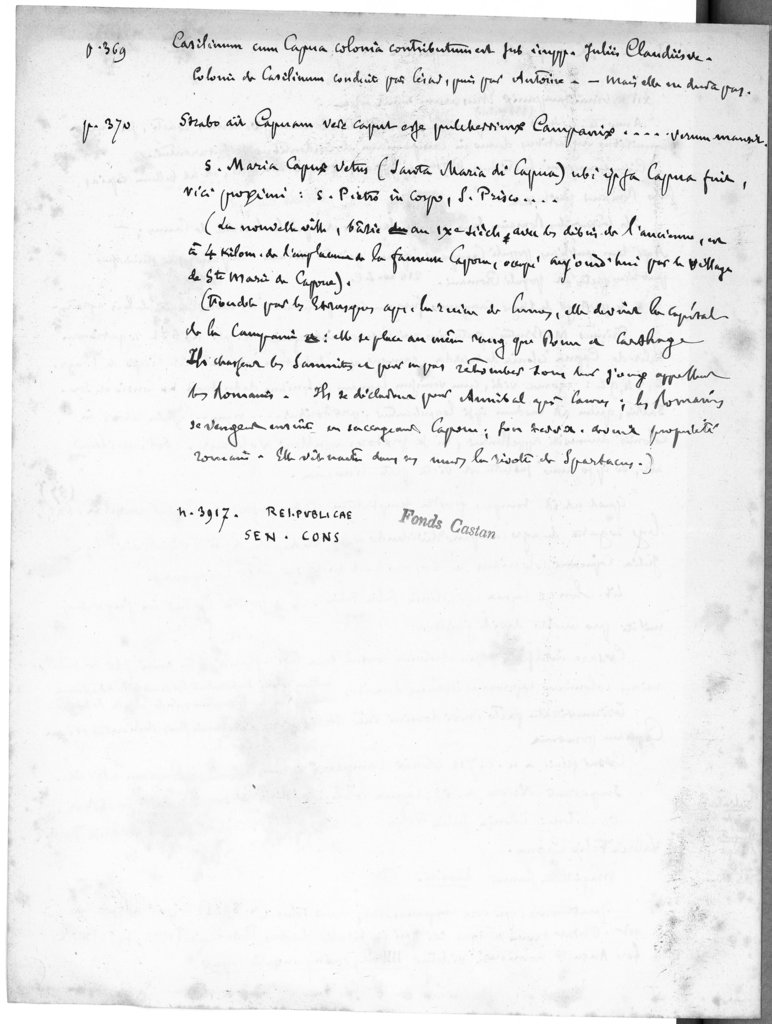 p. 369 Casilinum cum Capua colonia contributum est sub impp. Juliis Claudiisve.
Colonie de Casilinum conduite par César, puis par Antoine. — Mais elle ne dura pas.
p. 370 Strabo ait Capuam vere caput esse pulcherrimæ Campaniæ .... verum mansit.
S. Maria Capuæ vetus (Santa Maria di Capua) ubi ipsa Capua fuit,
vici proximi : S. Pietro in corpo, S. Prisco....
(La nouvelle ville, bâtie au IXe siècle, avec les débris de l'ancienne, est
à 4 kilom. de l'emplacement de la fameuse Capoue, occupé aujourd'hui par le village
de Ste Marie de Capoue).
(Fondée par les Etrusques après la ruine de Cumes, elle devint la capitale
de la Campanie : elle se place au même rang que Rome et Carthage
Ils chassent les Samnites et pour ne pas retomber sous leur joug appellent
les Romains. Ils se déclarent pour Annibal après Cannes ; les Romains
se vengent ensuite en saccageant Capoue ; son territ. devint propriété
romaine. Elle vit naître dans ses murs la révolte de Spartacus.)
n. 3917. REI.PUBLICAE
SEN. CONS
Fonds Castan